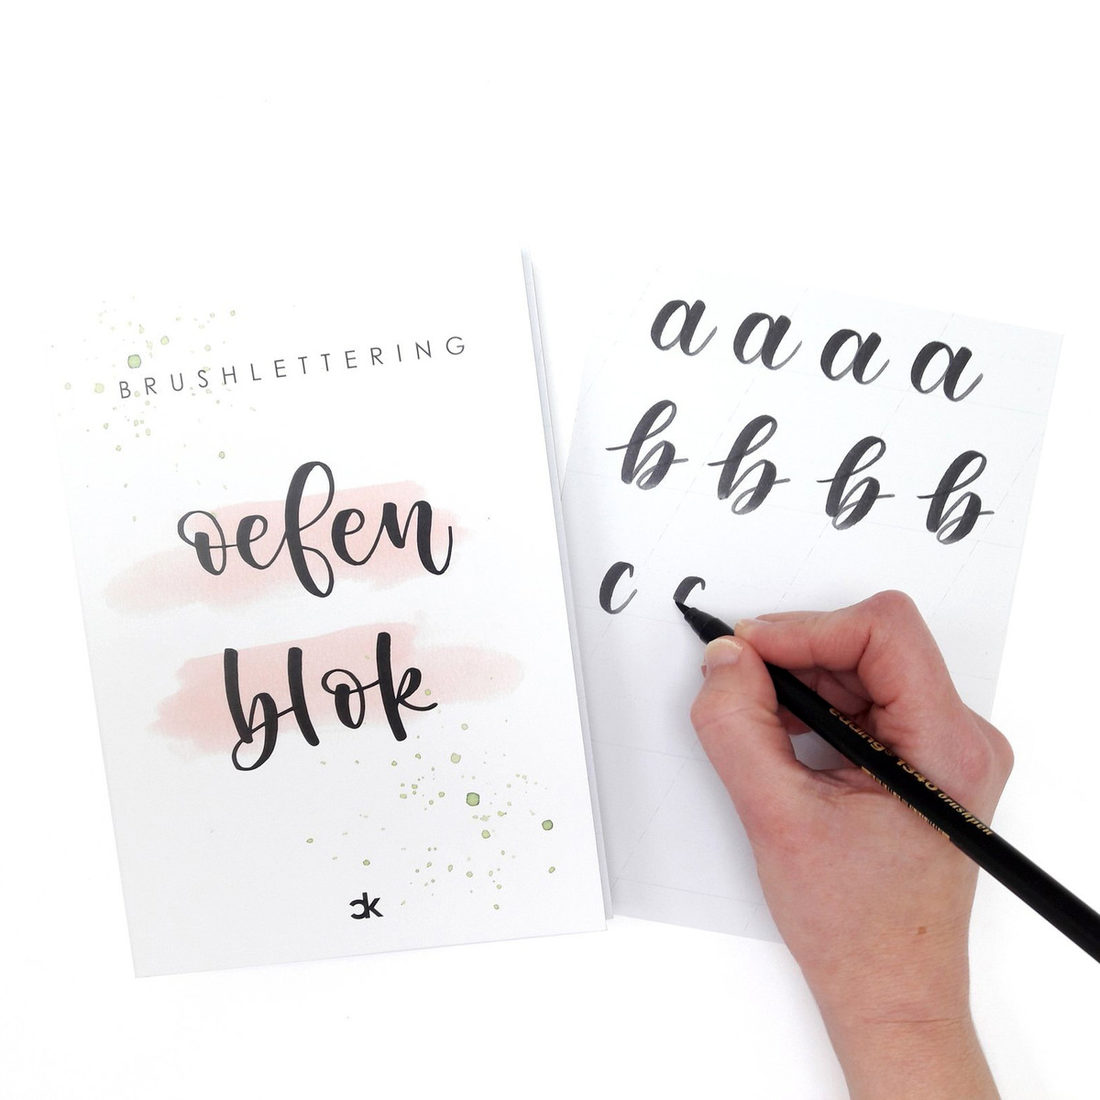 BRUSHLETTERING
oefen
blok
ck
a a a a
b b b b
c c
edding 1340 brushpen